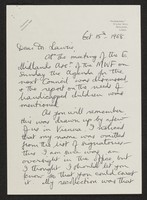 Oct 15th 1958
Dear Dr Lewis,
At the meeting of the E.
Midlands Ass. of the MWF on
Sunday the Agenda for the
next Council was discussed
& the report on the needs of
handicapped children was
mentioned.
As you will remember
this was drawn up by
in Vienna I
that my name was omitted
from the list of signatories -
this I am sure was an
oversight in the office but
I thought I should let you
know so that you could correct
it. My recollection was that